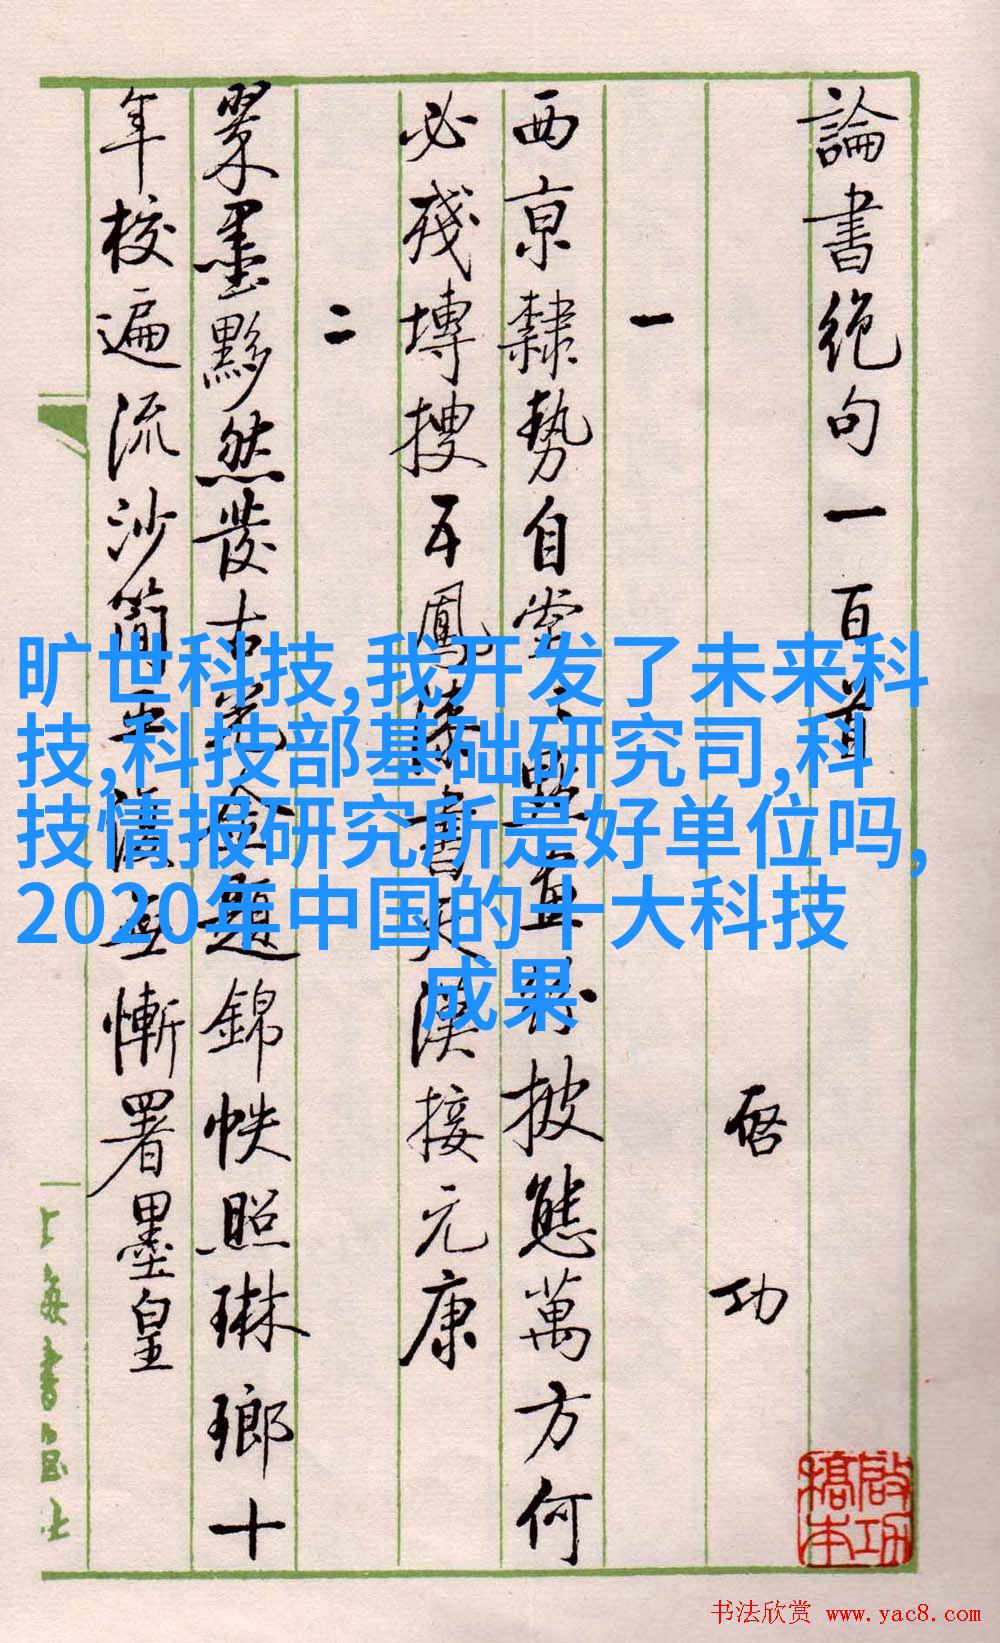 論書絕句一百首
啓功
一
西京隸勢自堂〻點畫紛披態萬方何
必殘塼搜五鳳漆書天漢接元康
二
翠墨黟然發古光金題錦帙照琳瑯十
年校遍流沙簡平復無慚署墨皇
上海書画社
啟功
旷世科技,我开发了未来科
技,科技部基础研究司,科
技情报研究所是好单位吗,
2020年中国的十大科技
成果
书法欣赏 www.yac8.com